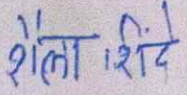 शैला शिंदे